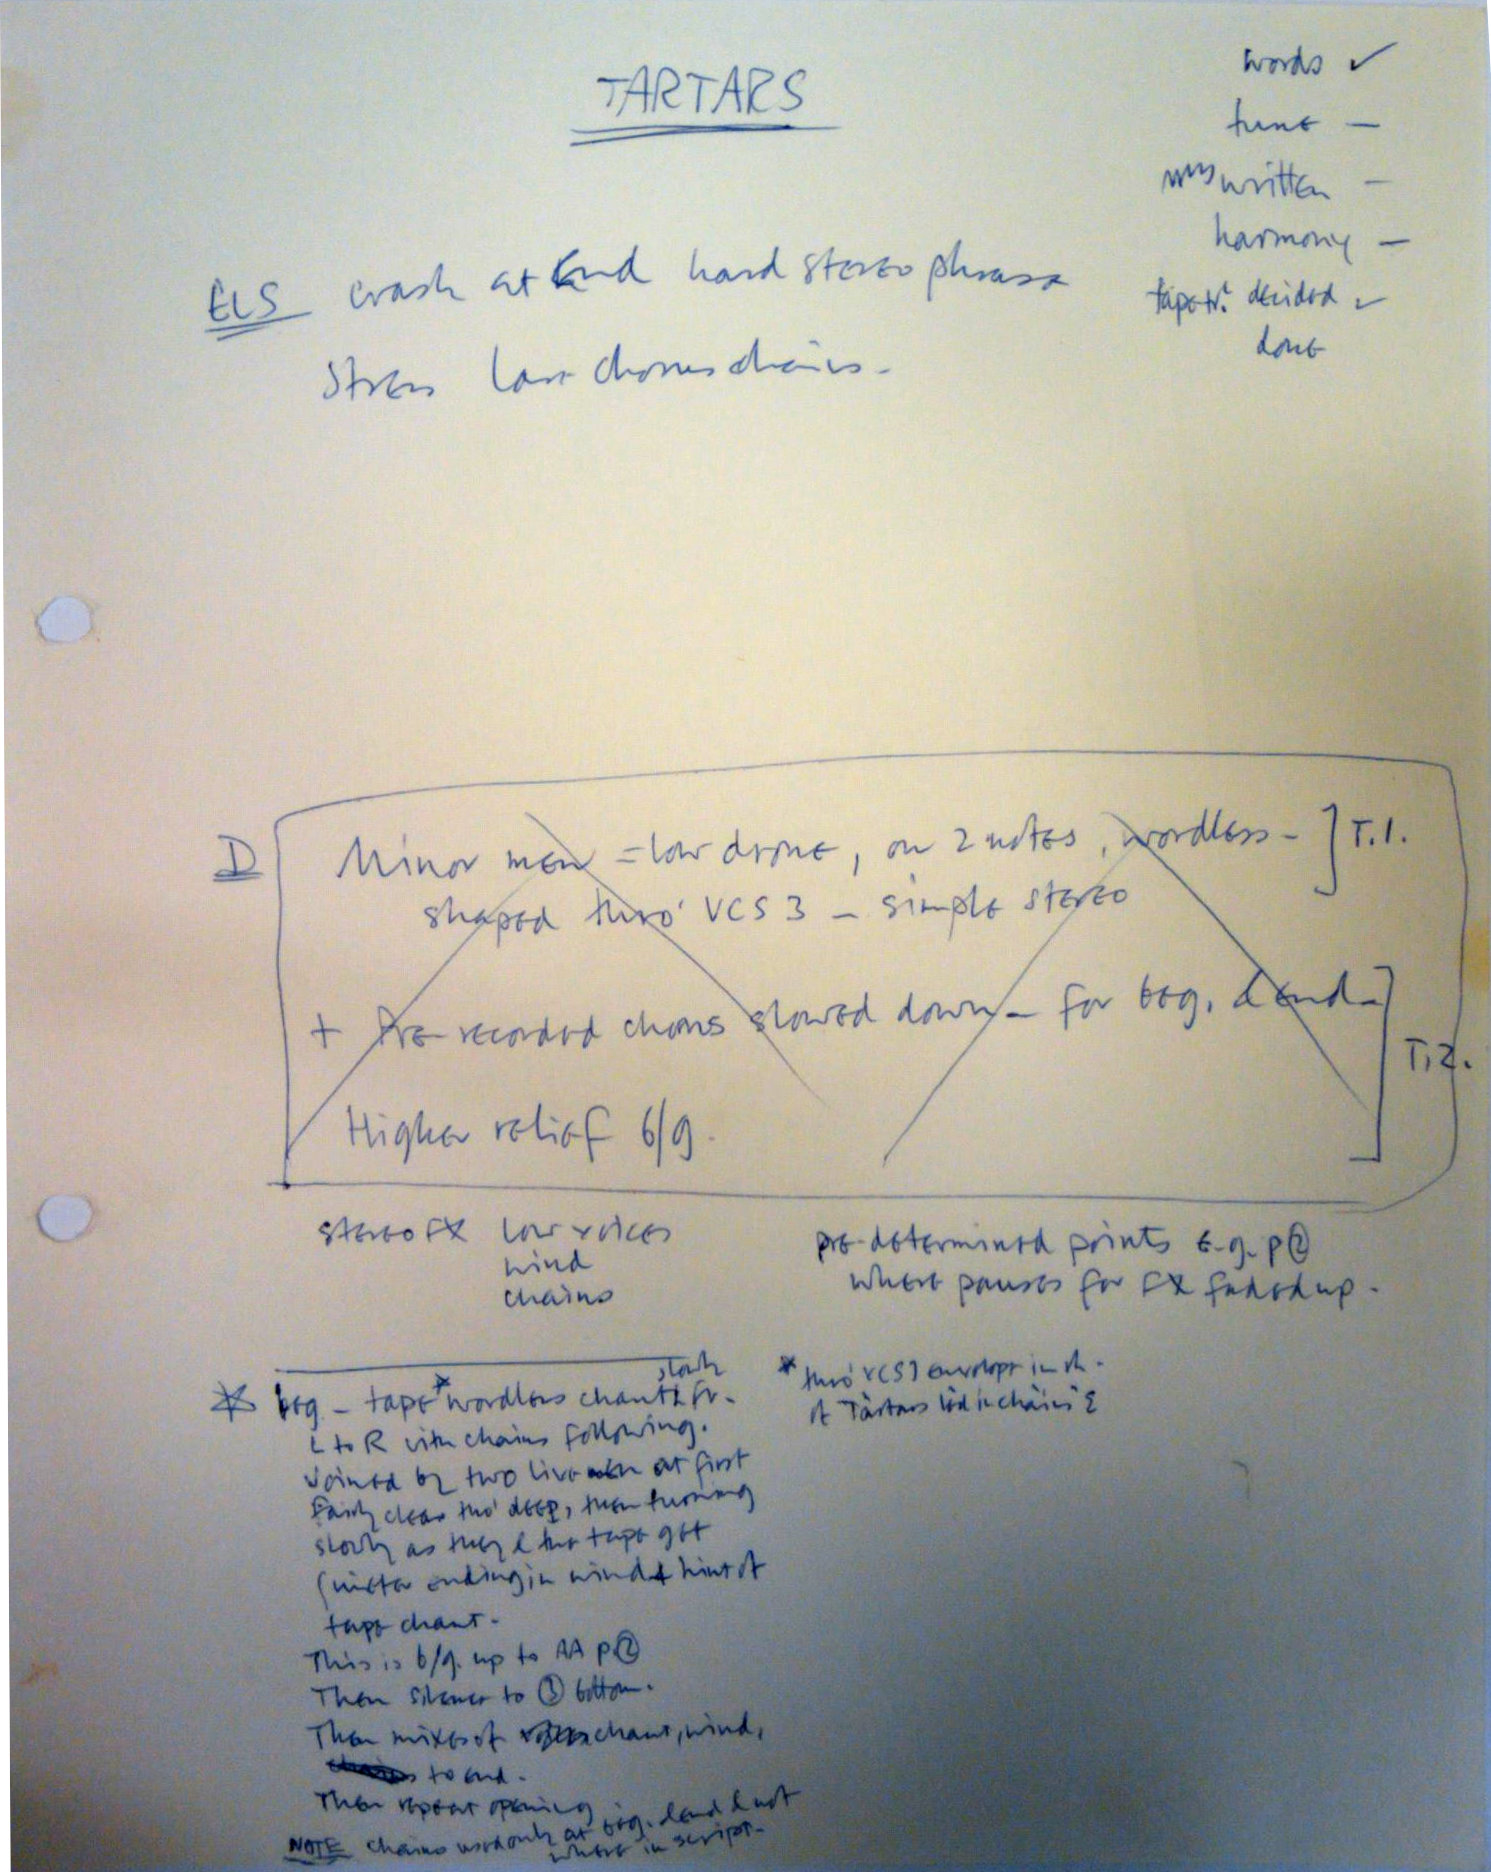 TARTARS
words ✓
tune —
written —
harmony —
tape tr. decided ✓
done
ELS crash at End hard stereo phrase
Stress last chorus chains.
D
Minor men = low drone, on 2 notes, wordless - ] T.1.
shaped thro' VCS 3 — simple stereo
+ Pre-recorded chains slowed down — for beg. & end - ] T.2.
Higher relief b/g.
stereo FX low voices
wind
chains
pre-determined points e.g. p②
where pauses for FX faded up.
* beg — tape* wordless chant slowly fr.
L to R with chains following.
Joined by two live men at first
fairly clear tho' deep, then turning
slowly as they & the tape get
quieter ending in wind & hint of
tape chant.
This is b/g. up to AA p②
Then silence to ③ bottom.
Then mixes of chant, wind,
chains to end.
Then repeat opening
NOTE chains used only at beg. & end & not
where in script.
* thro' VCS3 envelope in sh.
of Tartars led in chains